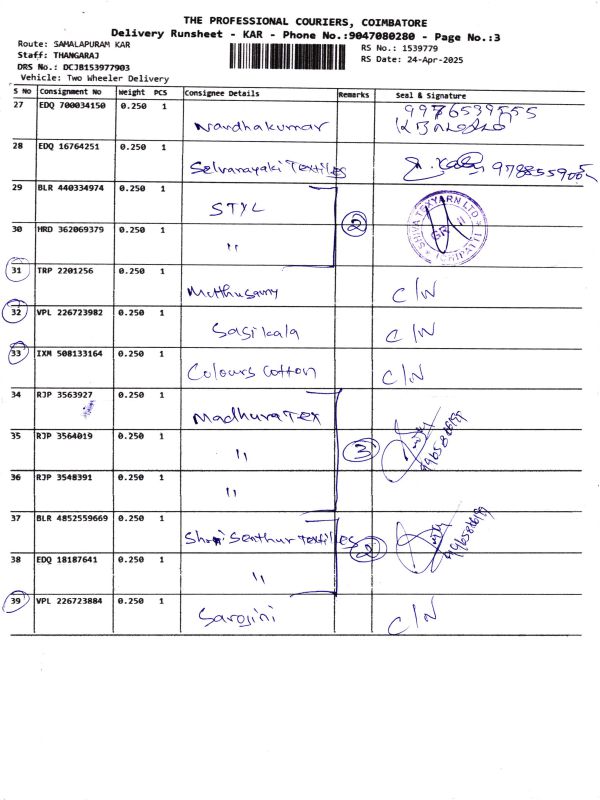 THE PROFESSIONAL COURIERS, COIMBATORE
Delivery Runsheet - KAR - Phone No.:9047080280 - Page No.:3
Route: SAMALAPURAM KAR
Staff: THANGARAJ
DRS No.: DCJB153977903
Vehicle: Two Wheeler Delivery
RS No.: 1539779
RS Date: 24-Apr-2025
S No Consignment No Weight PCS Consignee Details Remarks Seal & Signature
27 EDQ 700034150 0.250 1 Nandhakumar 9976539555
28 EDQ 16764251 0.250 1 Selvanayaki Textiles
29 BLR 440334974 0.250 1 STYL 2 SHIVA TEXYARN LTD
30 HRD 362069379 0.250 1 "
31 TRP 2201256 0.250 1 Muthusamy C/N
32 VPL 226723982 0.250 1 Sasikala C/N
33 IXM 508133164 0.250 1 Colours Cotton C/N
34 RJP 3563927 0.250 1 Madhura Tex
35 RJP 3564019 0.250 1 " 3
36 RJP 3548391 0.250 1 "
37 BLR 4852559669 0.250 1 Shri Senthur Textiles 2
38 EDQ 18187641 0.250 1 "
39 VPL 226723884 0.250 1 Sarojini C/N